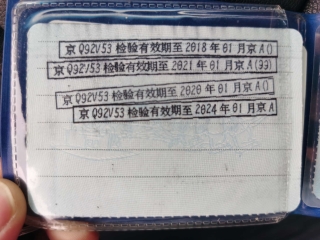 京Q92V53检验有效期至2018年01月京A()
京Q92V53检验有效期至2021年01月京A(99)
京Q92V53检验有效期至2020年01月京A()
京Q92V53检验有效期至2024年01月京A